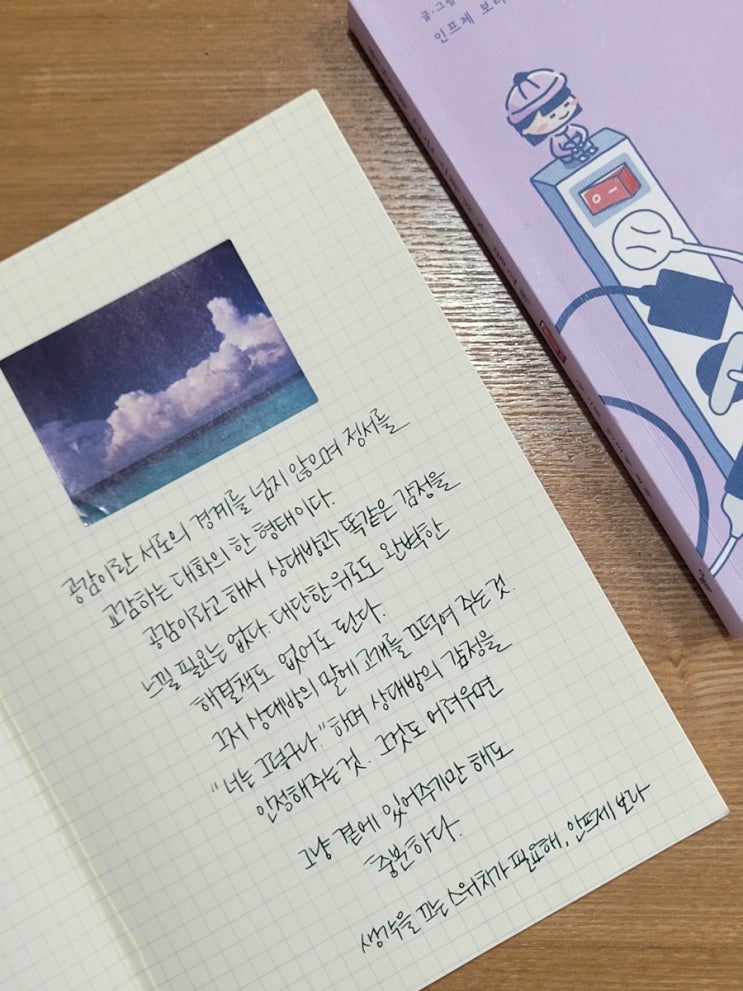 글·그림
인프제 보라
공감이란 서로의 경계를 넘지 않으며 정서를
교감하는 대화의 한 형태이다.
공감이라고 해서 상대방과 똑같은 감정을
느낄 필요는 없다. 대단한 위로도 완벽한
해결책도 없어도 된다.
그저 상대방의 말에 고개를 끄덕여 주는것.
"너는 그렇구나." 하며 상대방의 감정을
인정해주는것. 그것도 어려우면
그냥 곁에 있어주기만 해도
충분하다.
생각을 끄는 스위치가 필요해, 인프제 보라